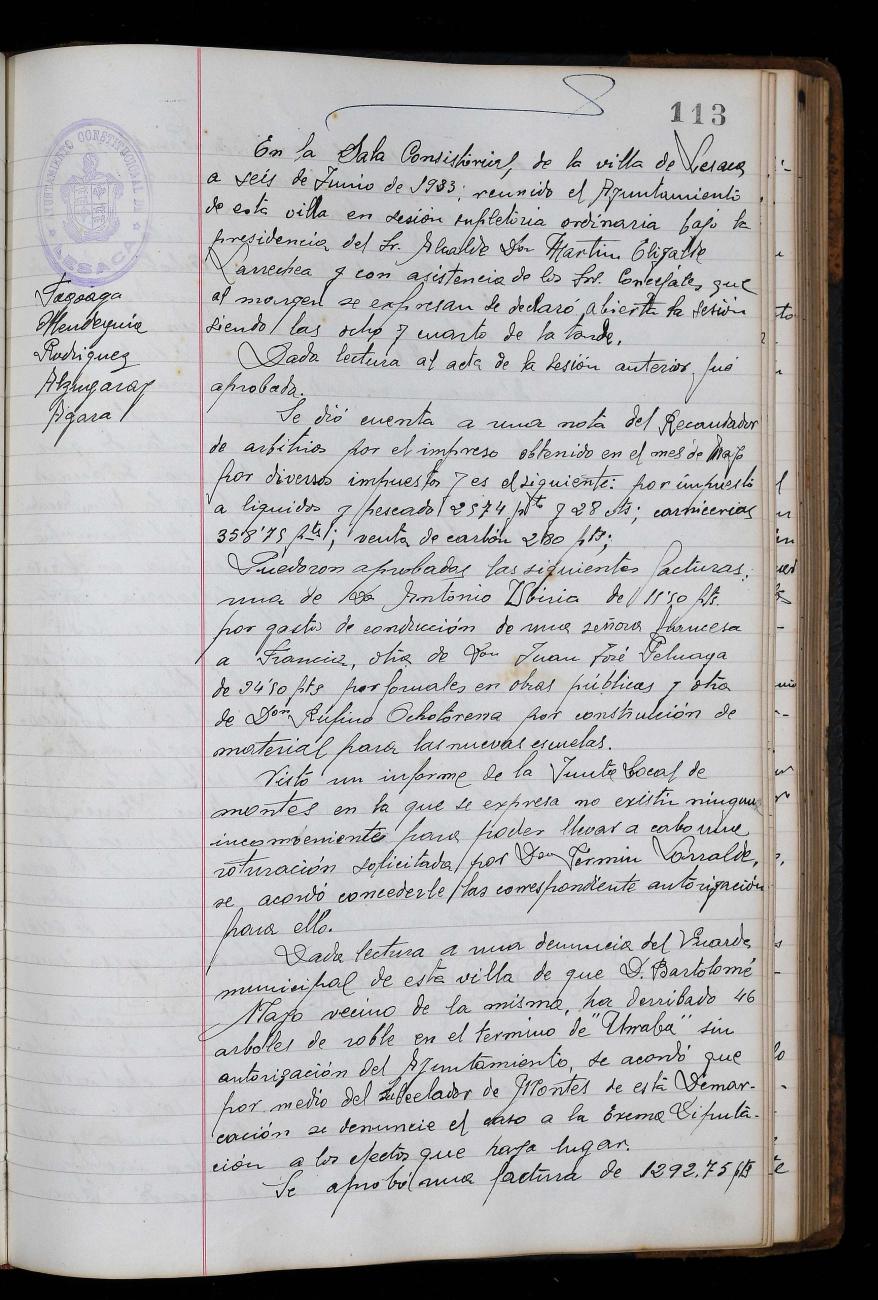 113
AYUNTAMIENTO CONSTITUCIONAL DE
LESACA
En la Sala Consistorial, de la villa de Lesaca
a seis de Junio de 1933; reunido el Ayuntamiento
de esta villa en sesión supletoria ordinaria bajo la
presidencia del Sr. Alcalde Don Martin Elizalde
Larrechea y con asistencia de los Srs. Concejales que
al margen se expresan se declaró abierta la sesión
siendo las ocho y cuarto de la tarde.
Tagoaga
Mendeguia
Rodriguez
Alzugaray
Agara
Dada lectura al acta de la sesión anterior fué
aprobada.
Se dió cuenta a una nota del Recaudador
de arbitrios por el impreso obtenido en el mes de Mayo
por diversos impuestos y es el siguiente: por impuesto
a liquidos y pescado 2574 pts y 28 cts; carnicerias
358'75 pts; venta de carbón 280 pts;
Quedaron aprobadas las siguientes facturas;
una de Don Antonio Ibiria de 11'50 pts.
por gastos de conducción de una señora francesa
a Francia, otra de Don Juan José Peluaga
de 94'50 pts por jornales en obras públicas y otra
de Don Rufino Ochotorena por construcción de
material para las nuevas escuelas.
Visto un informe de la Junta Local de
montes en la que se expresa no existir ninguna
incomvenientes para poder llevar a cabo una
roturación solicitada por Don Fermin Larralde,
se acordó concederle las correspondiente autorización
para ello.
Dada lectura a una denuncia del Guarda
municipal de esta villa de que D. Bartolomé
Mayo vecino de la misma, ha derribado 46
arboles de roble en el termino de "Urraba" sin
autorización del Ayuntamiento, se acordó que
por medio del Subcelador de Montes de esta Demar-
cación se denuncie el caso a la Exema Diputa-
ción a los efectos que haya lugar.
Se aprobó una factura de 1292.75 pts